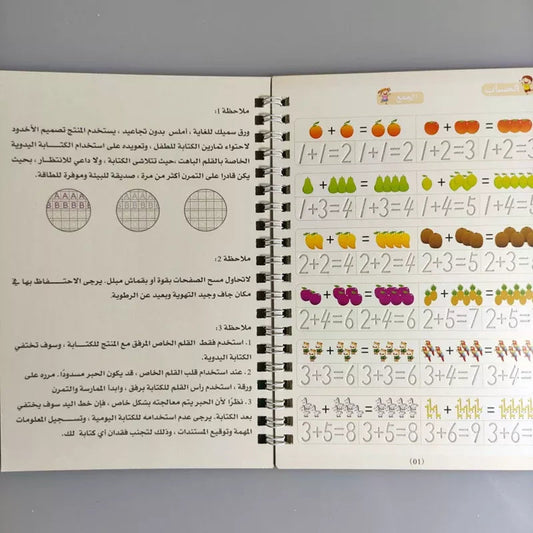 ملاحظة 1:
ورق سميك للغاية ، أملس بدون تجاعيد ، يستخدم المنتج تصميم الأخدود
لاحتواء تمارين الكتابة للطفل ، وتعويده على استخدام الكتابة اليدوية
الخاصة بالقلم الباهت ،حيث تتلاشى الكتابة ، ولا داعي للانتظار ، بحيث
يكن قادرا على التمرن أكثر من مرة ، صديقة للبيئة وموفرة للطاقة.
AAA
BBBBB
ملاحظة 2:
لاتحاول مسح الصفحات بقوة أو بقماش مبلل. يرجى الاحتفاظ بها في
مكان جاف وجيد التهوية وبعيد عن الرطوبة.
ملاحظة 3:
1. استخدم فقط القلم الخاص المرفق مع المنتج للكتابة ، وسوف تختفي
الكتابة اليدوية.
2. عند استخدام قلب القلم الخاص ، قد يكون الحبر مسدودًا. مرره على
ورقة ، استخدم رأس القلم للكتابة برفق ، وابدأ الممارسة والتمرن
3. نظرًا لأن الحبر يتم معالجته بشكل خاص ، فإن خط اليد سوف يختفي
بعد الكتابة. يرجى عدم استخدامه للكتابة اليومية ، وتسجيل المعلومات
المهمة وتوقيع المستندات ، وذلك لتجنب فقدان أي كتابة لك.
الحساب
الجمع
+ = + =
1+1=2 1+1=2 1+2=3 1+2=3
+ = + =
1+3=4 1+3=4 1+4=5 1+4=5
+ = + =
2+2=4 2+2=4 2+3=5 2+3=5
+ = + =
2+4=6 2+4=6 2+5=7 2+5=
+ = + =
3+3=6 3+3=6 3+4=7 3+4=
+ = + =
3+5=8 3+5=8 3+6=9 3+6=
(01)